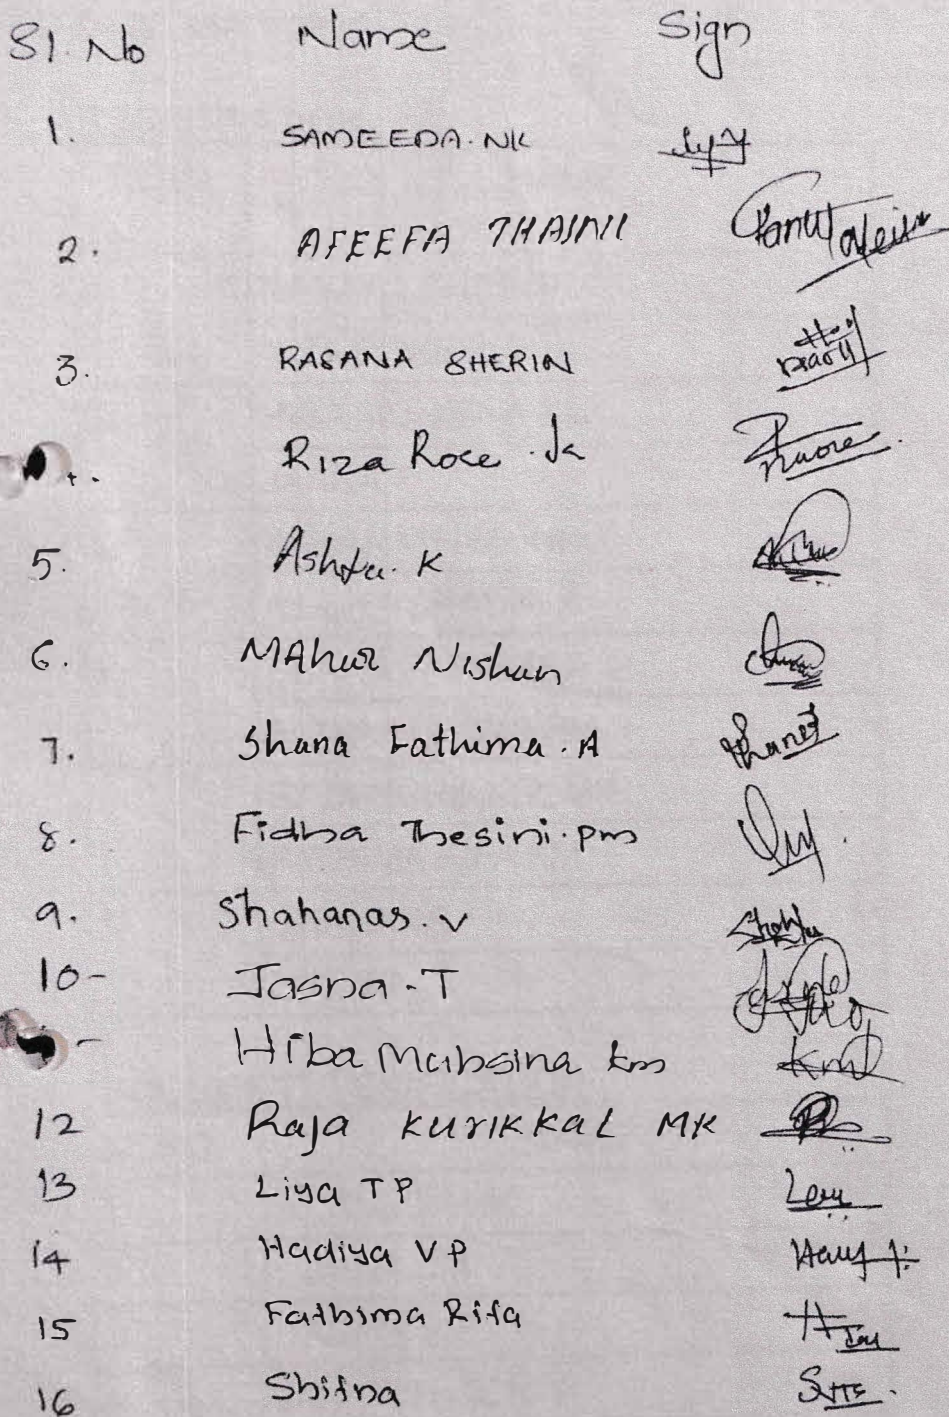 Sl. No Name Sign
1. SAMEEDA. NK
2. AFEEFA THASNI
3. RASANA SHERIN
4. Riza Rose . K
5. K
6. Nishan
7. Shana Fathima . A
8. Fidha Thesini . pm
9. Shahanas . V
10- Jasna . T
- Hiba Muhsina km
12 Raja KURIKKAL MK
13 Liya T P
14 Hadiya V P
15 Fathima Rifa
16 Shifna